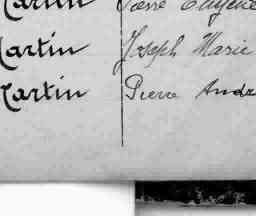 Martin Pierre Eugène
Martin Joseph Marie
Martin Pierre André